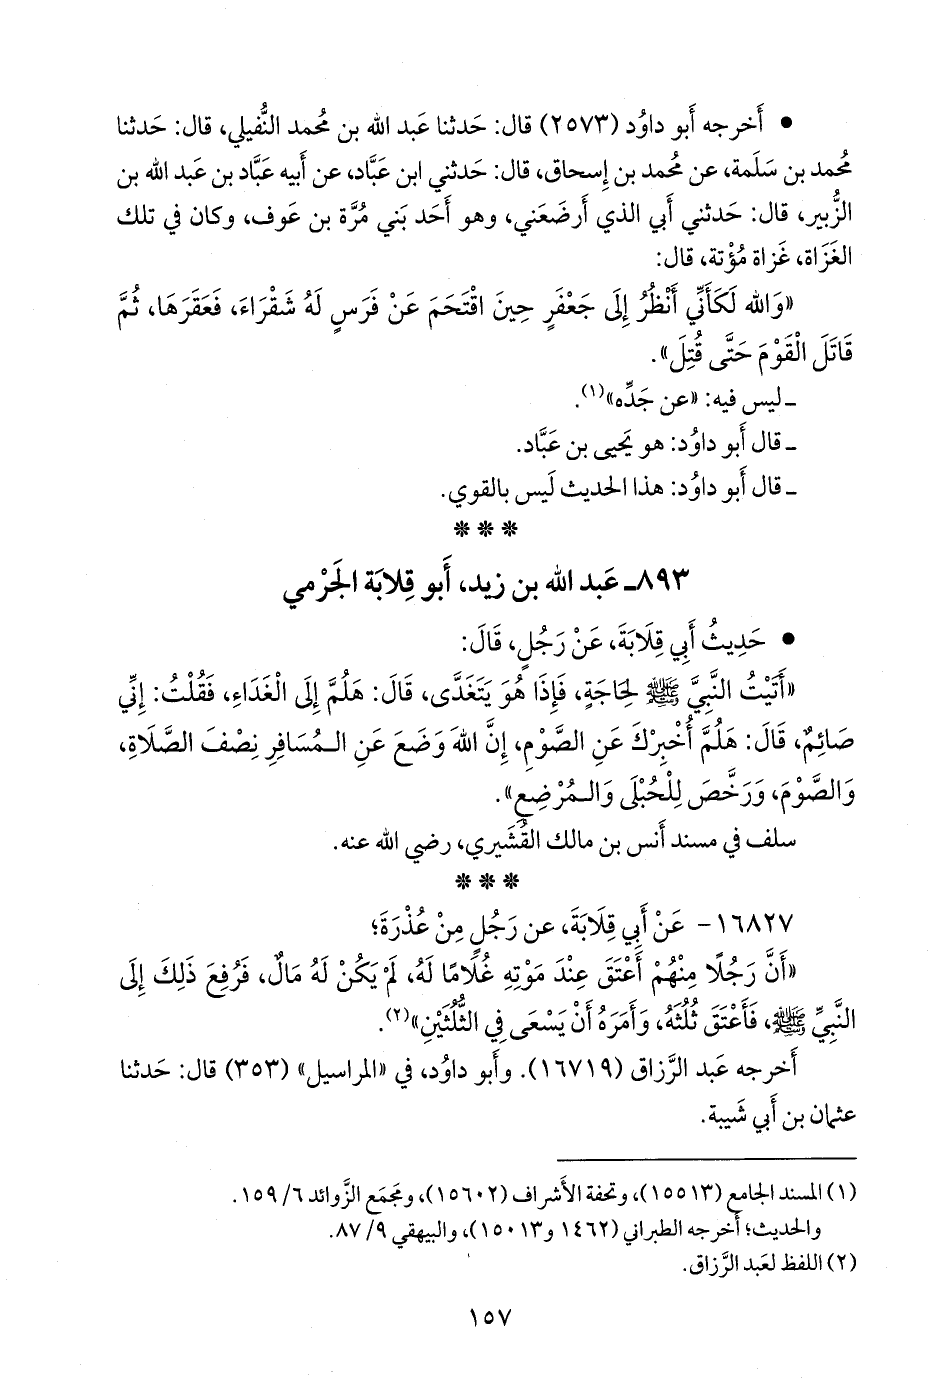 • أَخرجه أَبو داوُد (٢٥٧٣) قال: حَدثنا عَبد الله بن مُحمد النُّفيلي، قال: حَدثنا
مُحمد بن سَلَمة، عن مُحمد بن إِسحاق، قال: حَدثني ابن عَبَّاد، عن أَبيه عَبَّاد بن عَبد الله بن
الزُّبير، قال: حَدثني أَبي الذي أَرضَعَني، وهو أَحَد بَني مُرَّة بن عَوف، وكان في تلك
الغَزَاة، غَزاة مُؤْتة، قال:
«وَالله لَكَأَنِّي أَنْظُرُ إِلَى جَعْفَرٍ حِينَ اقْتَحَمَ عَنْ فَرَسٍ لَهُ شَقْرَاءَ، فَعَقَرَهَا، ثُمَّ
قَاتَلَ الْقَوْمَ حَتَّى قُتِلَ».
ـ ليس فيه: «عن جَدِّه»(١).
ـ قال أَبو داوُد: هو يَحيى بن عَبَّاد.
ـ قال أَبو داوُد: هذا الحَديث لَيس بالقوي.
* * *
٨٩٣ـ عَبد الله بن زيد، أَبو قِلابَة الجَرْمي
• حَدِيثُ أَبِي قِلَابَةَ، عَنْ رَجُلٍ، قَالَ:
«أَتَيْتُ النَّبِيَّ ﷺ لِحَاجَةٍ، فَإِذَا هُوَ يَتَغَدَّى، قَالَ: هَلُمَّ إِلَى الْغَدَاءِ، فَقُلْتُ: إِنِّي
صَائِمٌ، قَالَ: هَلُمَّ أُخْبِرْكَ عَنِ الصَّوْمِ، إِنَّ اللهَ وَضَعَ عَنِ الـمُسَافِرِ نِصْفَ الصَّلَاةِ،
وَالصَّوْمَ، وَرَخَّصَ لِلْحُبْلَى وَالـمُرْضِعِ».
سلف في مسند أَنس بن مالك القُشَيري، رضي الله عنه.
* * *
١٦٨٢٧- عَنْ أَبِي قِلَابَةَ، عن رَجُلٍ مِنْ عُذْرَةَ؛
«أَنَّ رَجُلًا مِنْهُمْ أَعْتَقَ عِنْدَ مَوْتِهِ غُلَامًا لَهُ، لَمْ يَكُنْ لَهُ مَالٌ، فَرُفِعَ ذَلِكَ إِلَى
النَّبِيِّ ﷺ، فَأَعْتَقَ ثُلُثَهُ، وَأَمَرَهُ أَنْ يَسْعَى فِي الثُّلُثَيْنِ»(٢).
أَخرجه عَبد الرَّزاق (١٦٧١٩). وأَبو داوُد، في «المراسيل» (٣٥٣) قال: حَدثنا
عثمان بن أَبي شَيبة.
(١) المسند الجامع (١٥٥١٣)، وتحفة الأَشراف (١٥٦٠٢)، ومَجمَع الزَّوائد ٦/ ١٥٩.
والحَديث؛ أَخرجه الطبراني (١٤٦٢ و١٥٠١٣)، والبيهقي ٩/ ٨٧.
(٢) اللفظ لعَبد الرَّزاق.
١٥٧